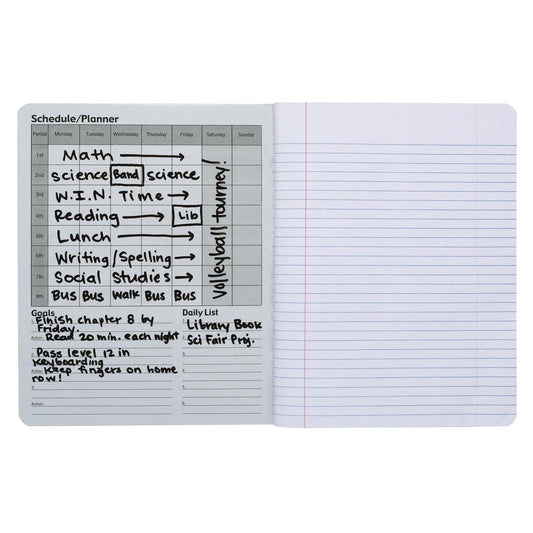 Schedule/Planner
Period Monday Tuesday Wednesday Thursday Friday Saturday Sunday
1st Math →
2nd science Band science
3rd W.I.N. Time →
4th Reading → Lib
5th Lunch →
6th Writing/Spelling →
7th Social Studies →
8th Bus Bus Walk Bus Bus
Volleyball tourney!
Goals
1. Finish chapter 8 by
Friday.
Action: Read 20 min. each night
2. Pass level 12 in
keyboarding
Action: Keep fingers on home
row!
3.
Action:
Daily List
1. Library Book
2. Sci Fair Proj.
3.
4.
5.
6.
7.
8.